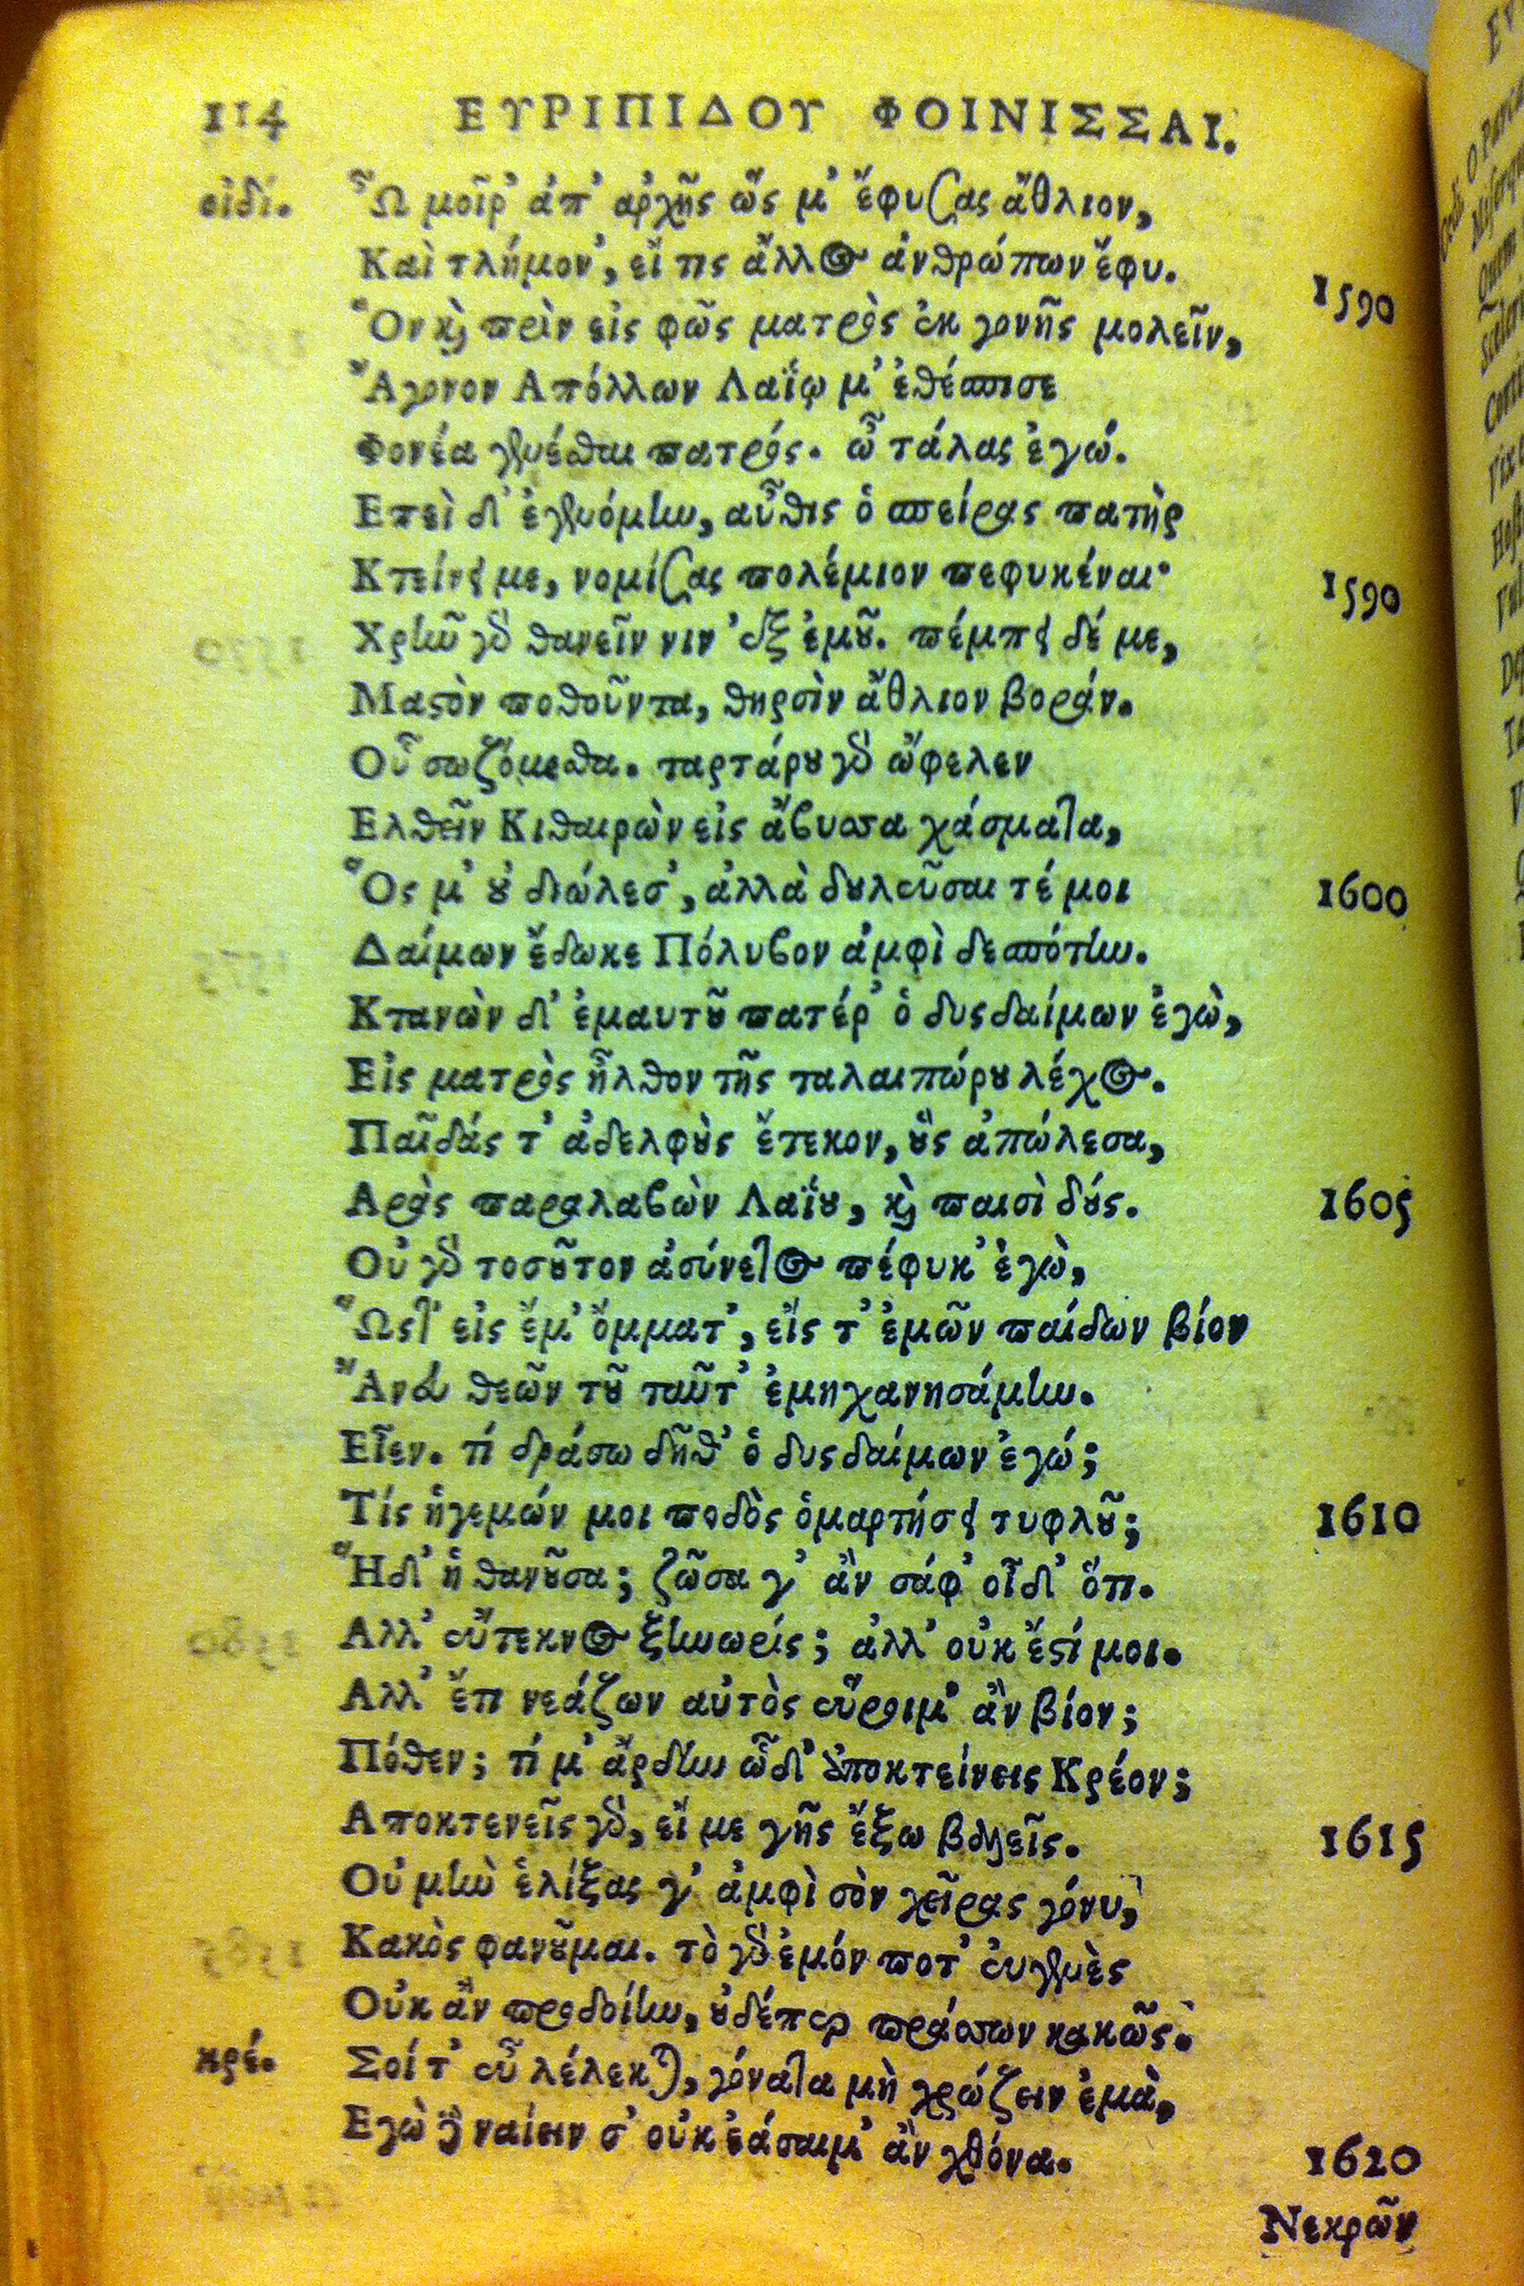 114 ΕΥΡΙΠΙΔΟΥ ΦΟΙΝΙΣΣΑΙ.
οἰδί. Ὦ μοῖρ' ἀπ' ἀρχῆς ὥς μ' ἔφυσας ἄθλιον,
Καὶ τλήμον', εἴ τις ἄλλος ἀνθρώπων ἔφυ.
Ὃν καὶ πρὶν εἰς φῶς ματρὸς ἐκ γονῆς μολεῖν, 1590
Ἄγονον Απόλλων Λαΐῳ μ' ἐθέσπισε
Φονέα γενέσθαι πατρός. ὦ τάλας ἐγώ.
Επεὶ δ' ἐγενόμην, αὖθις ὁ σπείρας πατὴρ
Κτείνει με, νομίσας πολέμιον πεφυκέναι· 1590
Χρῆν γὰρ θανεῖν νιν ἐξ ἐμοῦ. πέμπει δέ με,
Μαστὸν ποθοῦντα, θηρσὶν ἄθλιον βοράν.
Οὗ σωζόμεσθα. ταρτάρου γὰρ ὤφελεν
Ελθεῖν Κιθαιρὼν εἰς ἄβυσσα χάσματα,
Ὅς μ' οὐ διώλεσ', ἀλλὰ δουλεῦσαι τέ μοι 1600
Δαίμων ἔδωκε Πόλυβον ἀμφὶ δεσπότην.
Κτανὼν δ' ἐμαυτοῦ πατέρ' ὁ δυςδαίμων ἐγὼ,
Εἰς ματρὸς ἦλθον τῆς ταλαιπώρου λέχος.
Παῖδάς τ' ἀδελφοὺς ἔτεκον, οὓς ἀπώλεσα,
Αρὰς παραλαβὼν Λαΐου, καὶ παισὶ δούς. 1605
Οὐ γὰρ τοσοῦτον ἀσύνετος πέφυκ' ἐγὼ,
Ὥςτ' εἰς ἔμ' ὄμματ', εἴς τ' ἐμῶν παίδων βίον
Ἄνευ θεῶν του ταῦτ' ἐμηχανησάμην.
Εἶεν. τί δράσω δῆθ' ὁ δυςδαίμων ἐγώ;
Τίς ἡγεμών μοι ποδὸς ὁμαρτήσει τυφλοῦ; 1610
Ἥδ' ἡ θανοῦσα; ζῶσα γ' ἂν σάφ' οἶδ' ὅτι.
Αλλ' εὔτεκνος ξυνωρίς; ἀλλ' οὐκ ἔστί μοι.
Αλλ' ἔτι νεάζων αὐτὸς εὕροιμ' ἂν βίον;
Πόθεν; τί μ' ἄρδην ὧδ' ἀποκτείνεις Κρέον;
Αποκτενεῖς γὰρ, εἴ με γῆς ἔξω βαλεῖς. 1615
Οὐ μὴν ἑλίξας γ' ἀμφὶ σὸν χεῖρας γόνυ,
Κακὸς φανοῦμαι. τὸ γὰρ ἐμόν ποτ' εὐγενὲς
Οὐκ ἂν προδοίην, οὐδέπερ πράσσων κακῶς.
κρέ. Σοί τ' εὖ λέλεκται, γόνατα μὴ χρώζειν ἐμὰ,
Εγὼ δὲ ναίειν σ' οὐκ ἐάσαιμ' ἂν χθόνα. 1620
Νεκρῶν